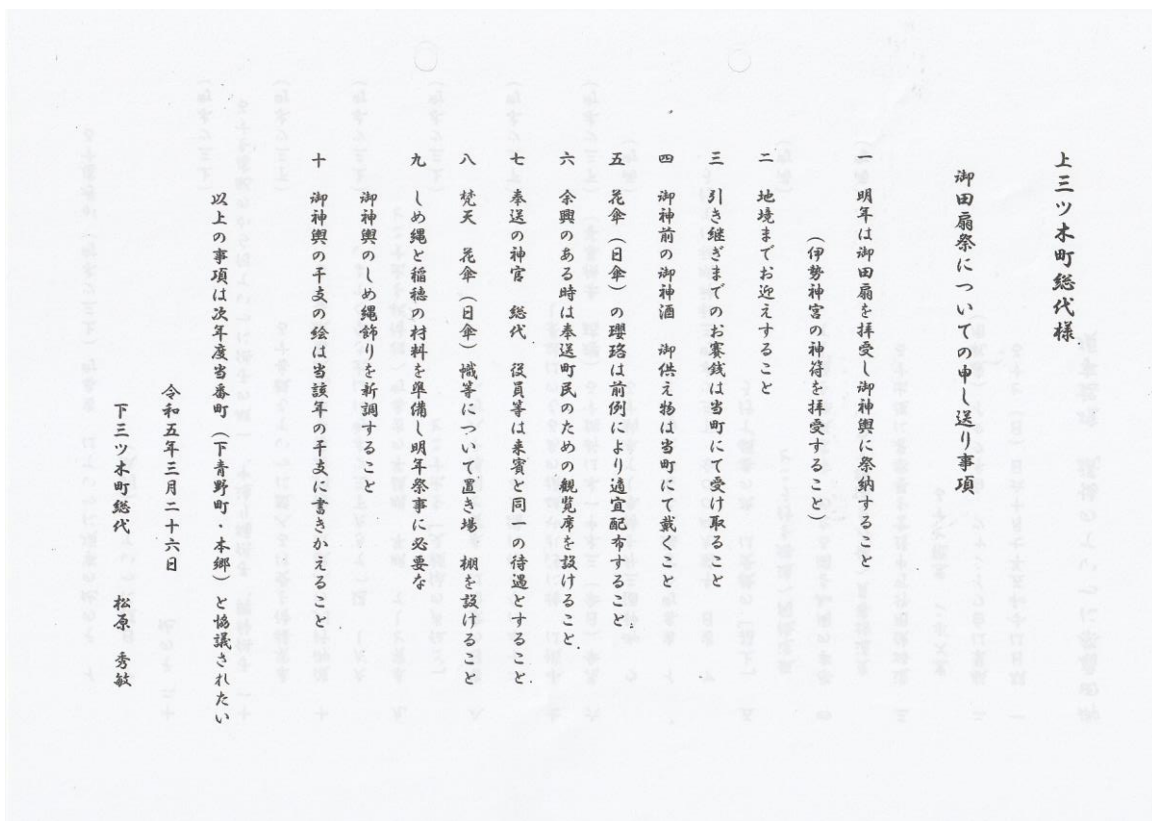 上三ツ木町総代様
御田扇祭についての申し送り事項
一 明年は御田扇を拝受し御神輿に祭納すること
（伊勢神宮の神符を拝受すること）
二 地境までお迎えすること
三 引き継ぎまでのお賽銭は当町にて受け取ること
四 御神前の御神酒 御供え物は当町にて戴くこと
五 花傘（日傘）の瓔珞は前例により適宜配布すること
六 余興のある時は奉送町民のための観覧席を設けること
七 奉送の神官 総代 役員等は来賓と同一の待遇とすること
八 梵天 花傘（日傘）幟等について置き場 棚を設けること
九 しめ縄と稲穂の材料を準備し明年祭事に必要な
御神輿のしめ縄飾りを新調すること
十 御神輿の干支の絵は当該年の干支に書きかえること
以上の事項は次年度当番町（下青野町・本郷）と協議されたい
令和五年三月二十六日
下三ツ木町総代 松原 秀敏